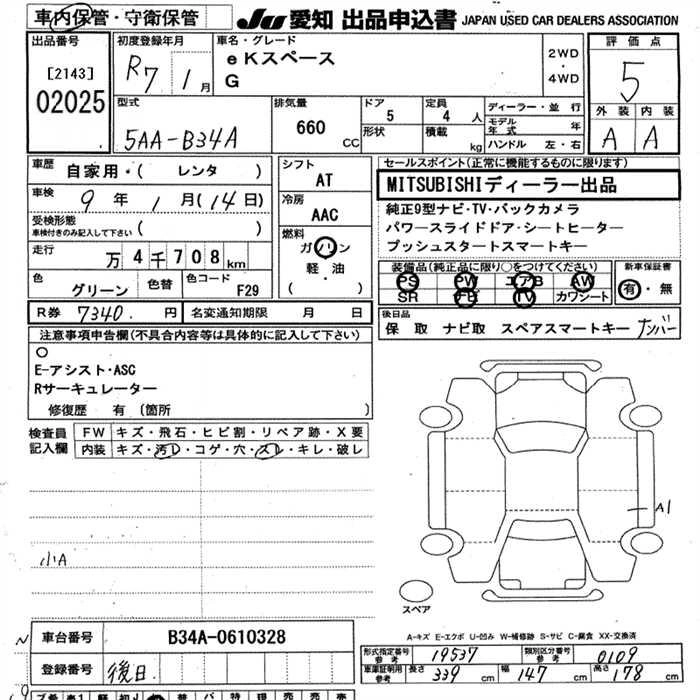 車内保管・守衛保管
JU 愛知 出品申込書 JAPAN USED CAR DEALERS ASSOCIATION
出品番号
[2143]
02025
初度登録年月
R7 1月
車名・グレード
eKスペース
G
2WD
・
4WD
評価点
5
外装 内装
A A
型式
5AA-B34A
排気量
660 CC
ドア
5
形状
定員
4 人
積載
kg
ディーラー・並行
モデル年式 年
ハンドル 左・右
車歴
自家用・( レンタ )
車検
9年 1月(14日)
受検形態
車検付きのみ記入して下さい ( )
走行
万4千708km
色
グリーン
色替
色コード
F29
シフト
AT
冷房
AAC
燃料
ガソリン
軽・油
( )
セールスポイント(正常に機能するものに限ります)
MITSUBISHIディーラー出品
純正9型ナビ・TV・バックカメラ
パワースライドドア・シートヒーター
プッシュスタートスマートキー
装備品(純正品に限り○をつけてください)
PS PW エアB AW
SR ナビ TV カワシート
新車保証書
有・無
R券 7340. 円 名変通知期限 月 日
後日品
保 取 ナビ取 スペアスマートキー ナンバー
注意事項申告欄(不具合内容等は具体的に記入して下さい)
○
E-アシスト・ASC
Rサーキュレーター
修復歴 有(箇所 )
検査員
記入欄
FW キズ・飛石・ヒビ割・リペア跡・X要
内装 キズ・汚レ・コゲ・穴・スレ・キレ・破レ
小A
A1
スペア
A-キズ E-エクボ U-凹み W-補修跡 S-サビ C-腐食 XX-交換済
車台番号 B34A-0610328
登録番号 後日
形式指定番号
参考
19537
類別区分番号
参考
0109
車庫証明用
参考
長さ 339 cm
幅 147 cm
高さ 178 cm